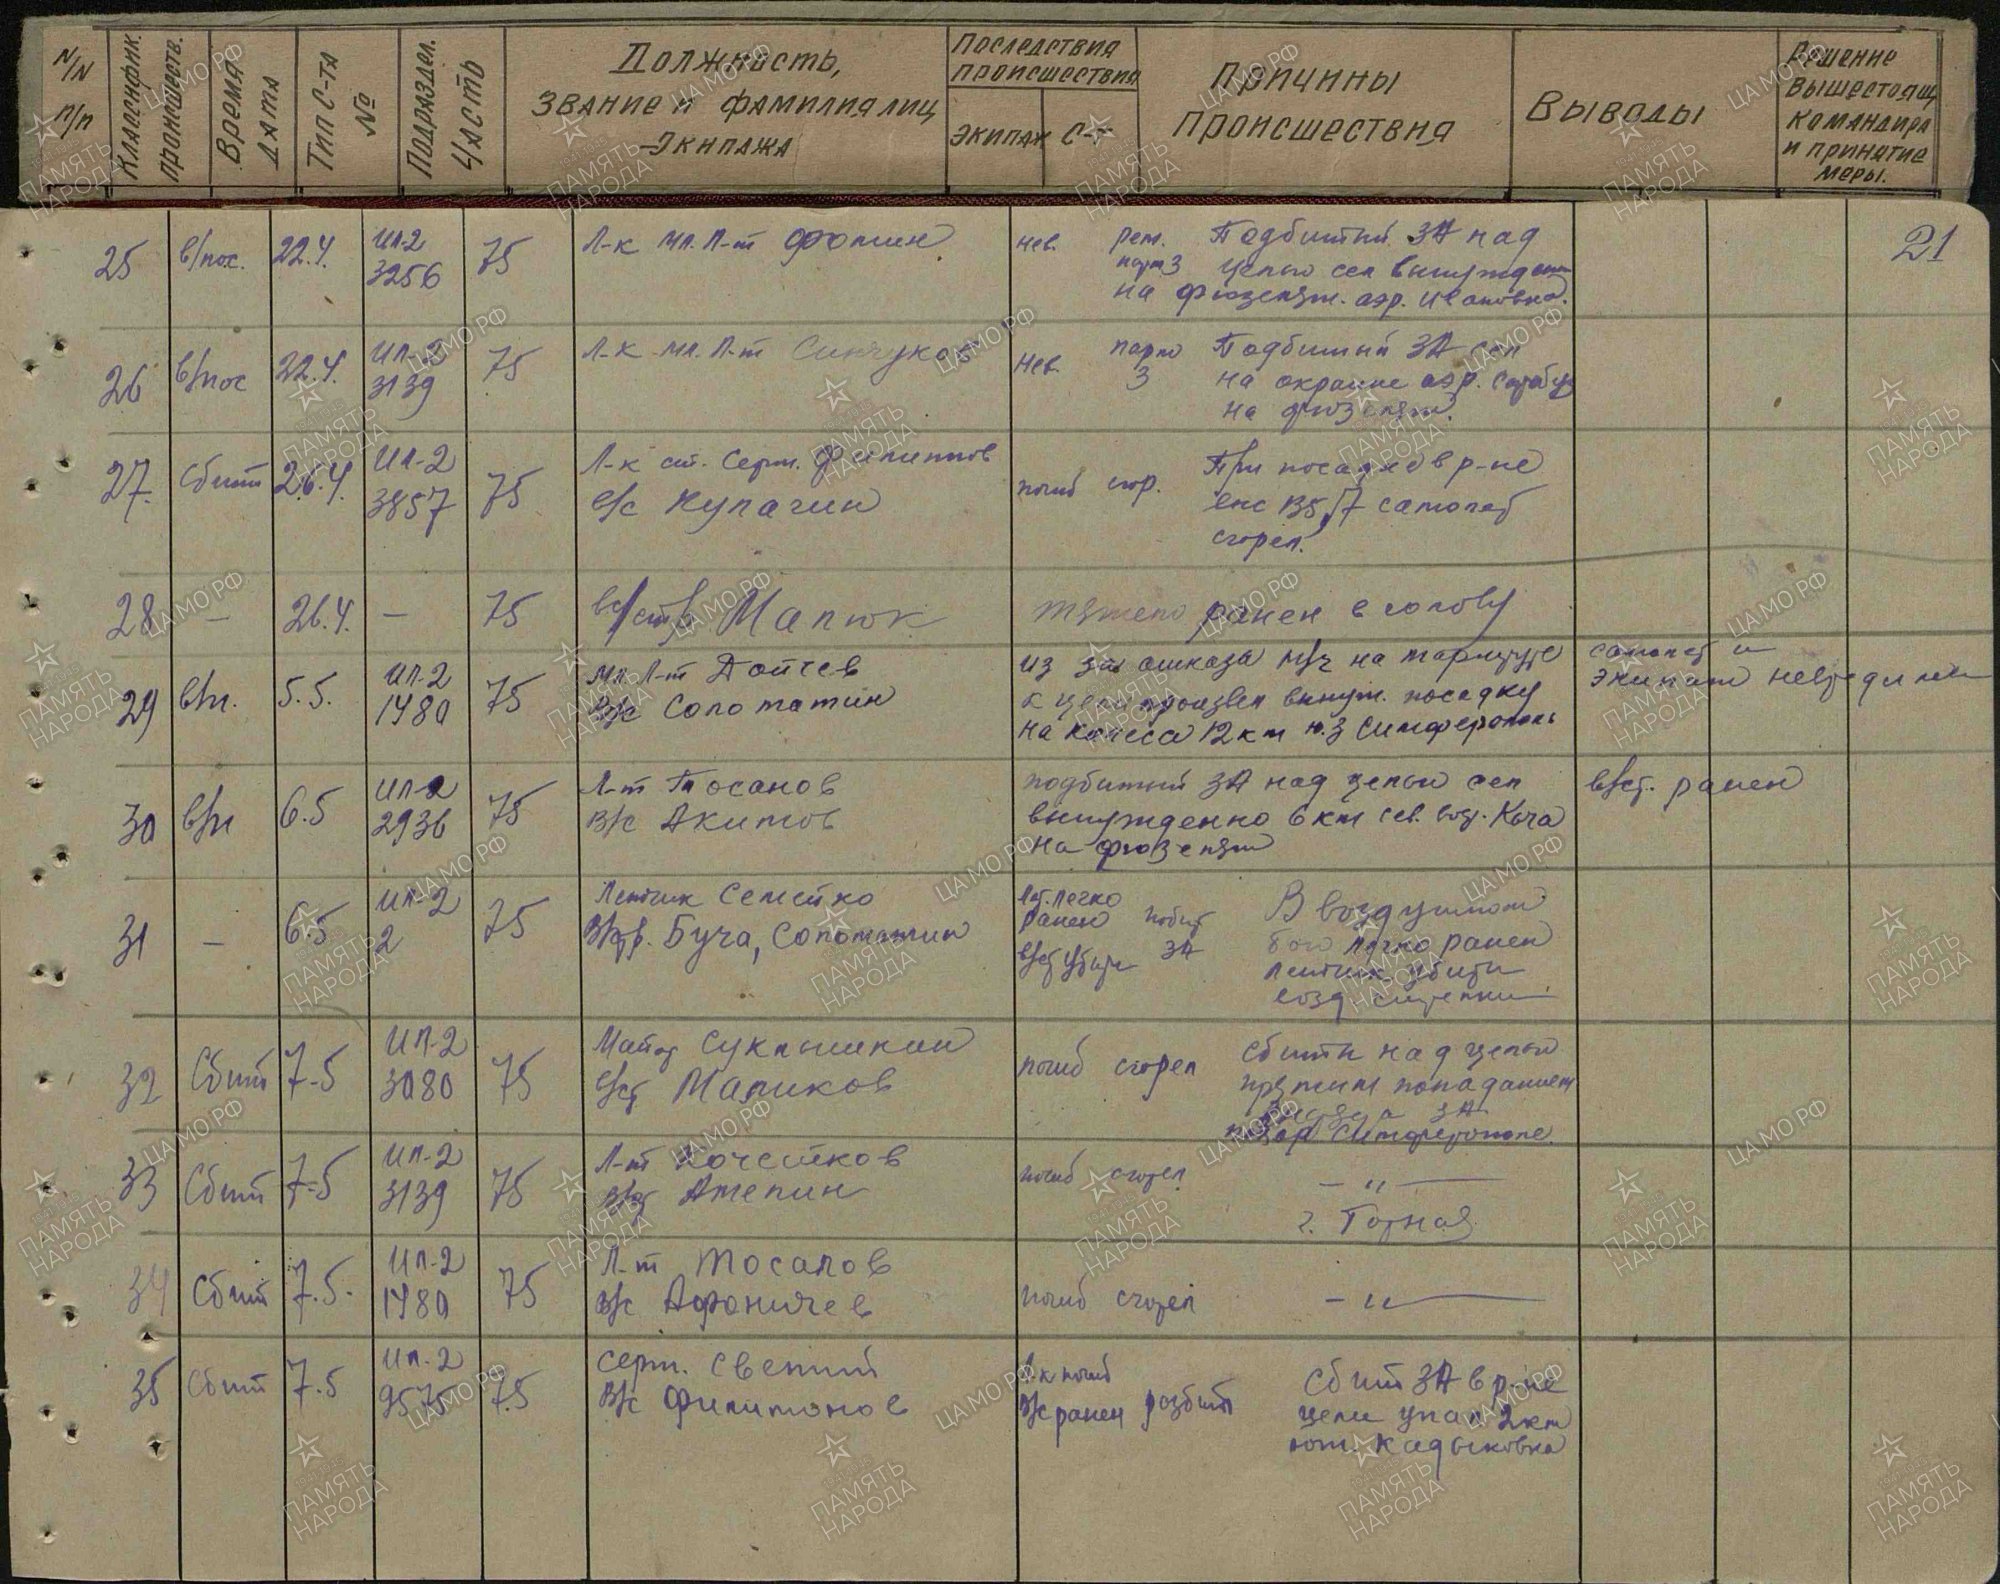 N/N п/п
Классифик. происшеств.
Время дата
Тип с-та №
Подраздел. часть
Должность,
звание и фамилия лиц
экипажа
Последствия
происшествия
экипаж с-т
Причины
происшествия
Выводы
Решение
вышестоящ.
командира
и принятие
меры.
21
25 в/пос. 22.4. Ил-2 3256 75
Л-к мл. л-т Фомин
нев. рем. Подбитый ЗА над
целью сел вынужденно
на фюзеляж. аэр. Ивановка.
26 в/пос 22.4. Ил-2 3139 75
Л-к мл. л-т Синчуков
нев. Подбитый ЗА сел
3 на окраине аэр. Сарабуз
на фюзеляж.
27. Сбит 26.4. Ил-2 3857 75
Л-к ст. серж. Филиппов
в/с Кулагин
погиб сгор. При посадке в р-не
самолет
сгорел.
28 — 26.4. — 75
в/стр. Малюк
тяжело ранен в голову
29 в/п. 5.5. Ил-2 1480 75
мл. л-т Дойчев
в/с Соломатин
из за отказа м/ч на маршруте
к цели произвел вынуж. посадку
на колеса 12 км ю.з Симферополь
самолет и
экипаж невредимы
30 в/п 6.5 Ил-2 2936 75
Л-т Тосанов
в/с Акимов
подбитый ЗА над целью сел
вынужденно 6 км сев. воз. Кача
на фюзеляж
в/ст. ранен
31 — 6.5 Ил-2 2 75
Летчик Семейко
в/стр. Буча, Соломатин
лет. легко
ранен побит
в/ст убит ЗА
В воздушном
бою легко ранен
летчик убиты
возд стрелки
32 Сбит 7-5 Ил-2 3080 75
Майор Суклышкин
в/ст Маликов
погиб сгорел
Сбиты над целью
прямым попаданием
снаряда ЗА
Симферополе.
33 Сбит 7-5 Ил-2 3139 75
Л-т Кочетков
в/ст Амелин
погиб сгорел — " —
г. Горная
34 Сбит 7.5. Ил-2 1480 75
Л-т Тосалов
в/с Афоничев
погиб сгорел — " —
35 Сбит 7.5 Ил-2 9575 75
серж. Светлый
в/с Филимонов
Л-к погиб
в/с ранен разбит
Сбит ЗА в р-не
цели упал 2 км
юж. Кадыковка
ПАМЯТЬ НАРОДА
1941-1945
ЦАМО РФ